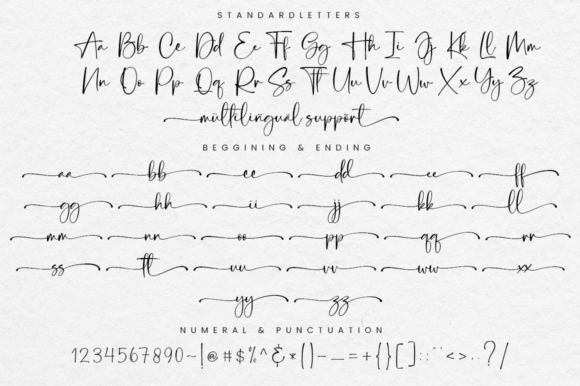 STANDARDLETTERS
Aa Bb Cc Dd Ee Ff Gg Hh Ii Jj Kk Ll Mm
Nn Oo Pp Qq Rr Ss Tt Uu Vv Ww Xx Yy Zz
multilingual support
BEGGINING & ENDING
aa bb cc dd ee ff
gg hh ii jj kk ll
mm nn oo pp qq rr
ss tt uu vv ww xx
yy zz
NUMERAL & PUNCTUATION
1234567890~!@#$%^&*()-_=+{}[]:;"'<>,.?/